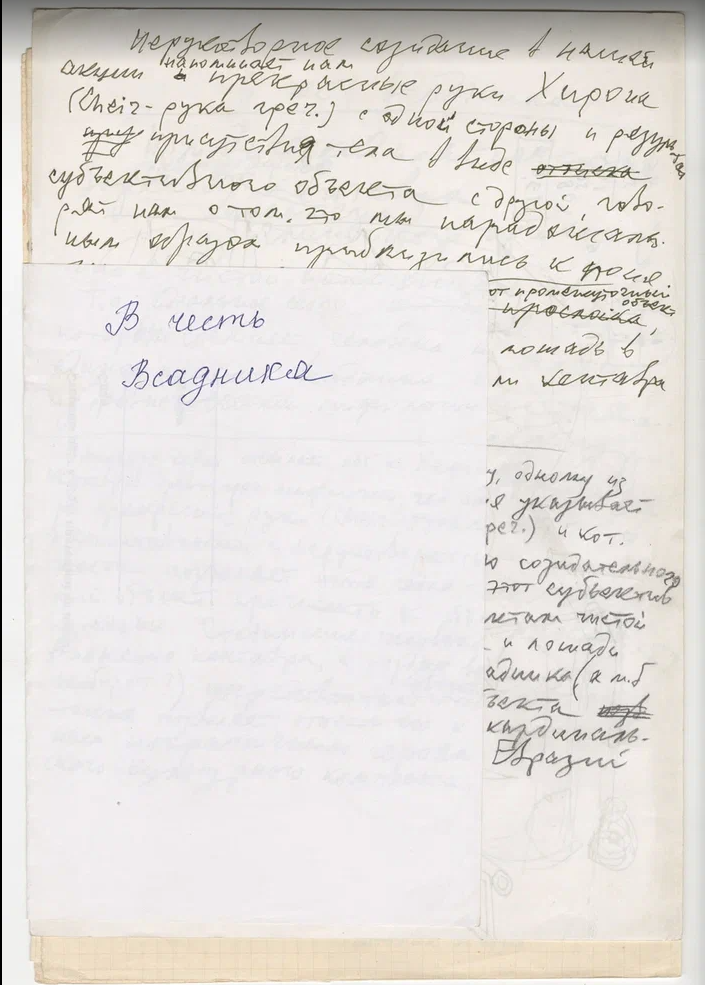 Нерукотворное созидание в нашей
акции напоминает нам прекрасные руки Хирона
(Cheir - рука греч.) с одной стороны и результат
присутствия тела в виде оттиска
субъективного объекта с другой, гово-
рят нам о том, что мы парадоксаль-
ным образом приблизились к
от промежуточный объект
прослойка,
лошадь в
ли кентавра
В честь
Всадника
у, одному из
я указывает
реч.) и кот.
ю созидательного
этот субъектив
чистой
- и лошади
адника (а м.б
ъекта
кардиналь-
Евразий